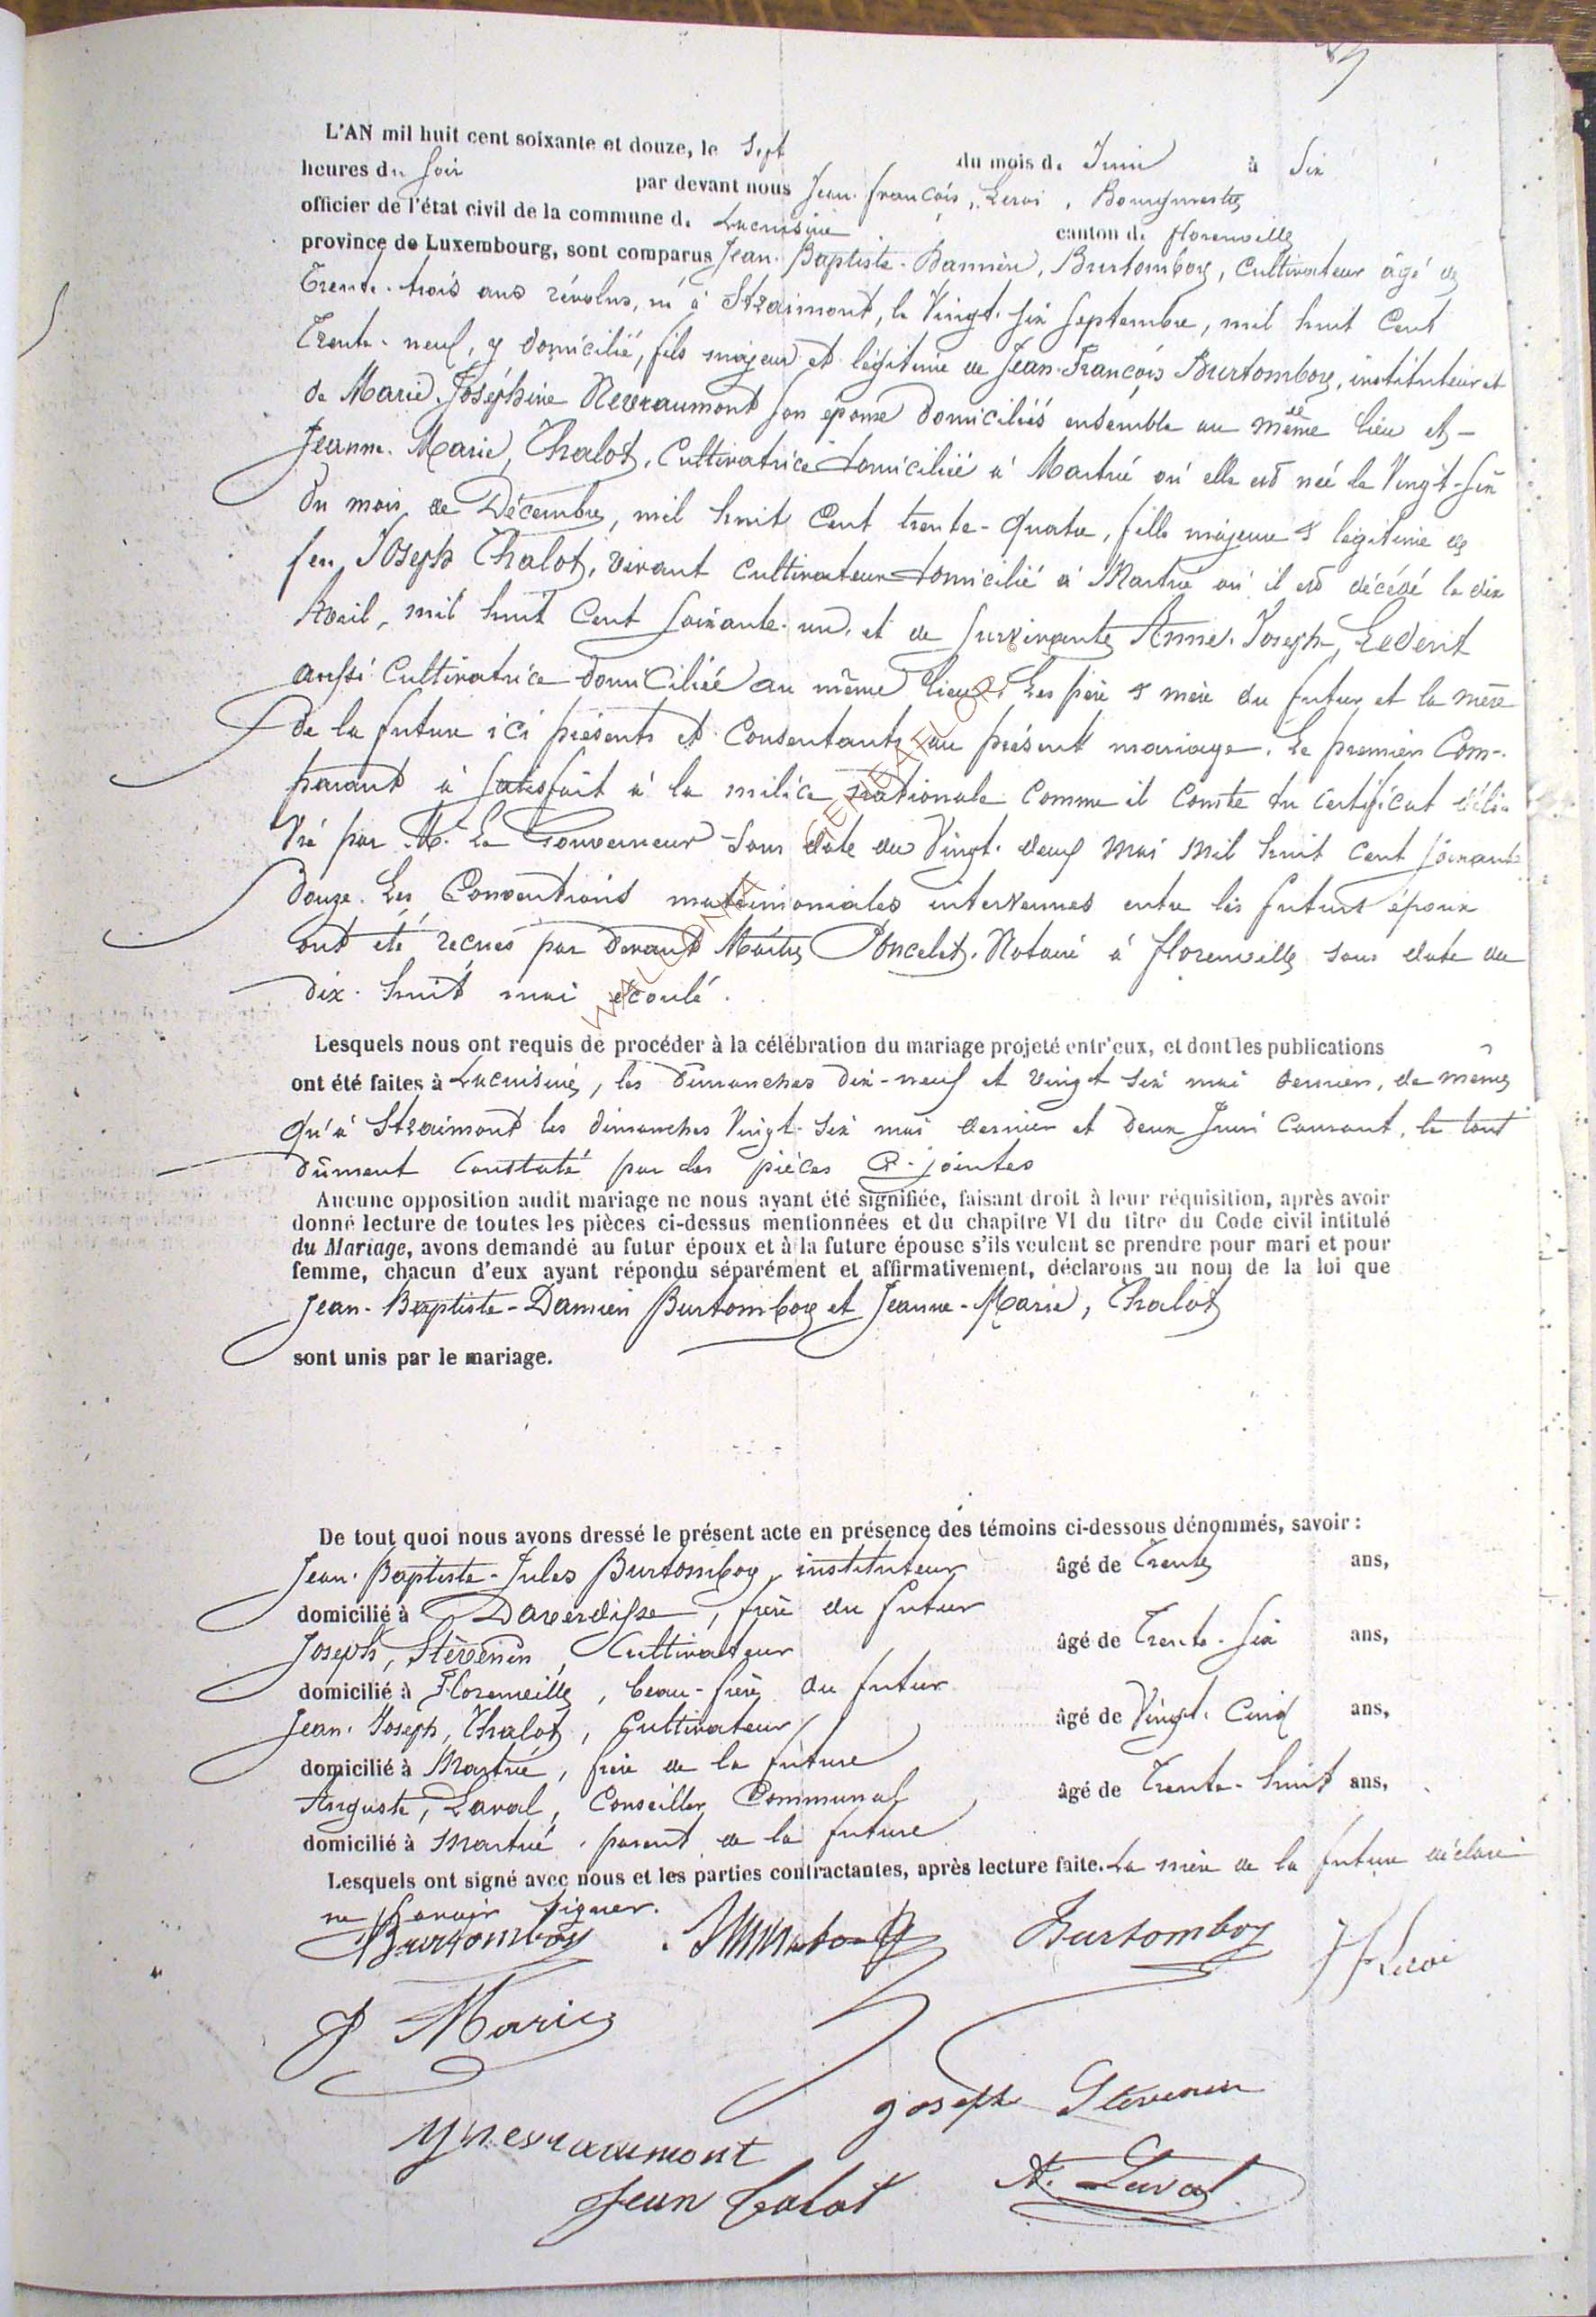 L'AN mil huit cent soixante et douze, le Sept du mois d. Juin à Six
heures du Soir par devant nous Jean François, Leroi, Bourgmestre
officier de l'état civil de la commune d. Lacuisine canton d. florenville
province de Luxembourg, sont comparus Jean-Baptiste-Damien, Burtomboy, Cultivateur âgé de
Trente-trois ans révolus, né à Straimont, le Vingt-Six Septembre, mil huit Cent
Trente-neuf, y domicilié, fils majeur et légitime de Jean-François Burtomboy, instituteur et
de Marie Joséphine Nevraumont son épouse domiciliés ensemble au même lieu et-
Jeanne-Marie, Thalot, Cultivatrice domiciliée à Martué où elle est née le Vingt-Six
du mois de Décembre, mil huit Cent trente-quatre, fille majeure & légitime de
feu Joseph Thalot, vivant cultivateur domicilié à Martué où il est décédé le dix
Avril, mil huit Cent Soixante-un, et de survivante Anne-Joseph, Ledent
aussi Cultivatrice domiciliée au même lieu. Les père & mère du futur et la mère
de la future ici présents et Consentants au présent mariage. Le premier Com-
parant à satisfait à la milice nationale comme il conste du certificat déli
vré par M. Le Gouverneur sous date du Vingt-deux mai mil huit cent soixante
douze. Les Conventions matrimoniales intervenues entre les futurs époux
ont été recues par devant Maître Poncelet, Notaire à florenville sous date du
dix-huit mai écoulé.
Lesquels nous ont requis de procéder à la célébration du mariage projeté entr'eux, et dont les publications
ont été faites à Lacuisine, les dimanches dix-neuf et vingt six mai dernier, de même
qu'à Straimont les dimanches Vingt-six mai dernier et deux Juin Courant, le tout
dûment constaté par les pièces ci-jointes
Aucune opposition audit mariage ne nous ayant été signifiée, faisant droit à leur réquisition, après avoir
donné lecture de toutes les pièces ci-dessus mentionnées et du chapitre VI du titre du Code civil intitulé
du Mariage, avons demandé au futur époux et à la future épouse s'ils veulent se prendre pour mari et pour
femme, chacun d'eux ayant répondu séparément et affirmativement, déclarons au nom de la loi que
Jean-Baptiste-Damien Burtomboy et Jeanne-Marie, Thalot
sont unis par le mariage.
De tout quoi nous avons dressé le présent acte en présence des témoins ci-dessous dénommés, savoir :
Jean-Baptiste-Jules Burtomboy, instituteur âgé de Trente ans,
domicilié à Daverdisse, frère du futur
Joseph, Stévenin, Cultivateur âgé de Trente-Six ans,
domicilié à Florenville, beau-frère du futur
Jean-Joseph, Thalot, Cultivateur âgé de Vingt-Cinq ans,
domicilié à Martué, frère de la future
Auguste, Laval, Conseiller Communal âgé de Trente-huit ans,
domicilié à Martué, parent de la future
Lesquels ont signé avec nous et les parties contractantes, après lecture faite. La mère de la future déclare
ne savoir signer.
Burtomboy Burtomboy JF Leroi
J Marie
Joseph Stevenin
Nevraumont
Jean Talot A. Laval
WALLONIA GENEAFLOR ©